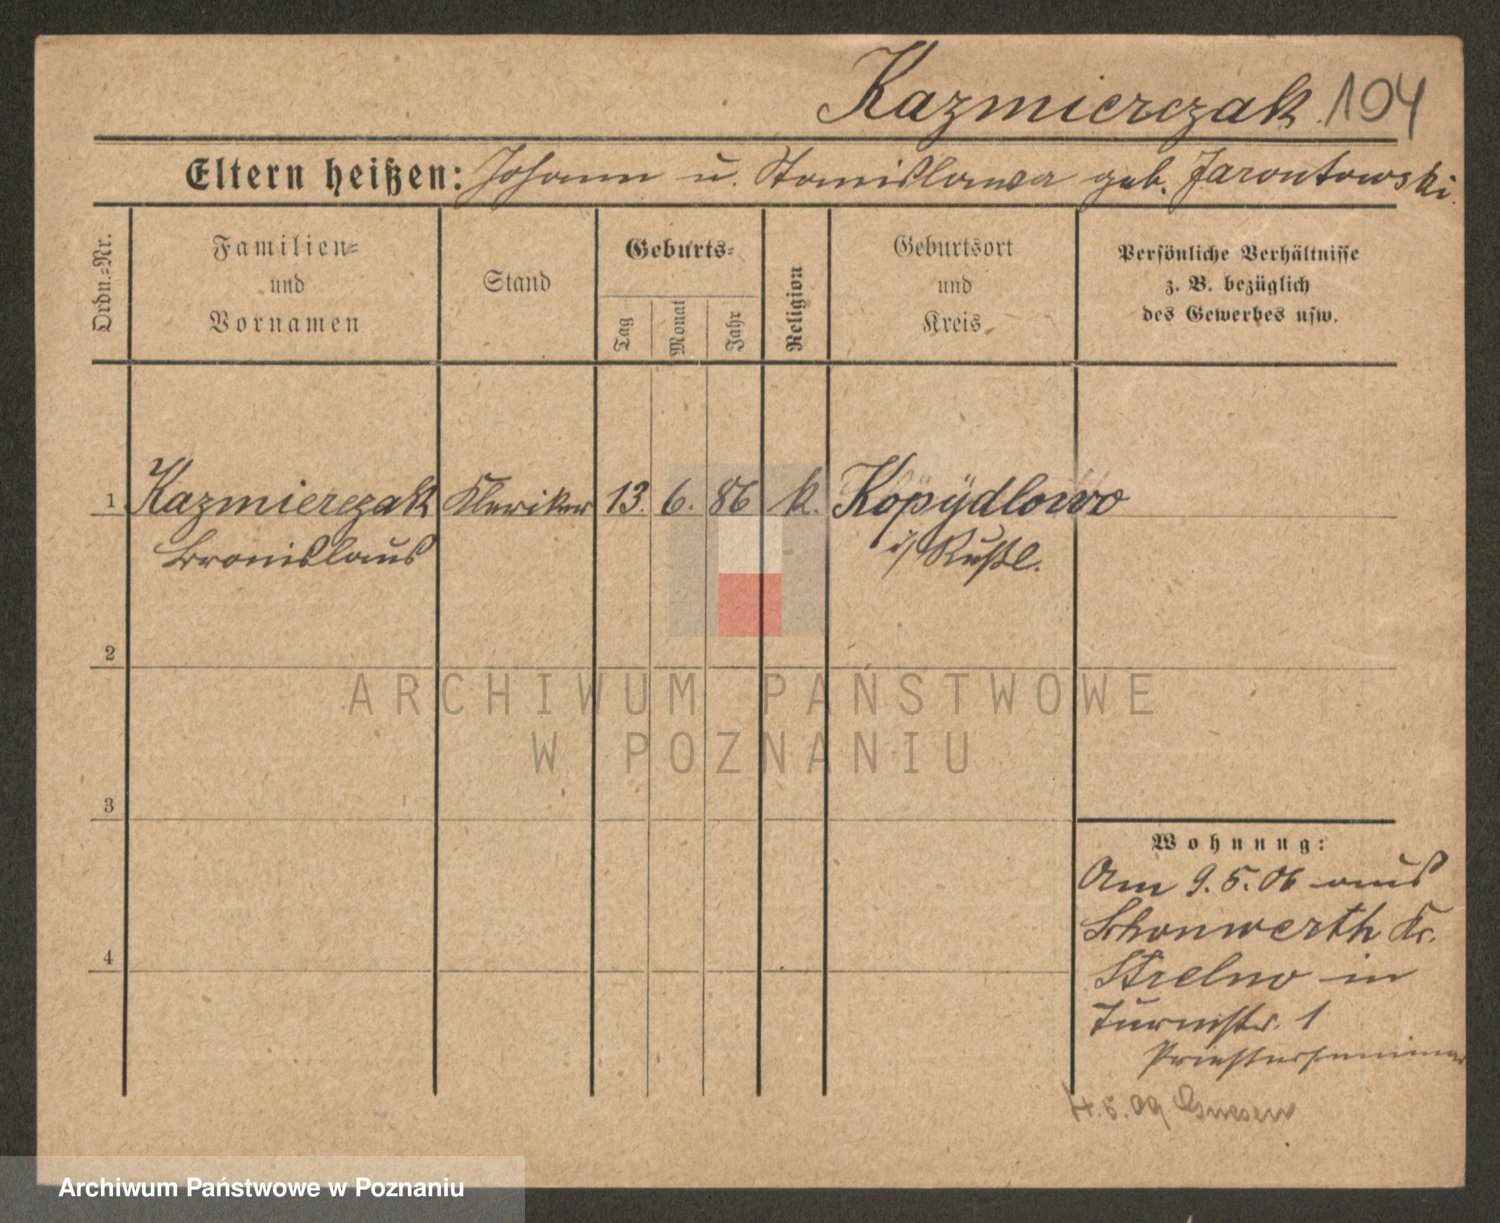 Kazmierczak. 104
Eltern heißen: Johann u. Stanislawa geb. Jarontowski.
Ordn.=Nr.
Familien=
und
Vornamen
Stand
Geburts=
Tag
Monat
Jahr
Religion
Geburtsort
und
Kreis
Persönliche Verhältnisse
z. B. bezüglich
des Gewerbes usw.
1 Kazmierczak Kleriker 13. 6. 86 k. Kopydlowo
Bronislaus i/ Rußl.
2
3
4
Wohnung:
Am 9. 5. 06 aus
Schonwerth Kr.
Strelno in
Turmstr. 1
Priesterseminar
4. 5. 09 Gnesen
ARCHIWUM PAŃSTWOWE
W POZNANIU
Archiwum Państwowe w Poznaniu